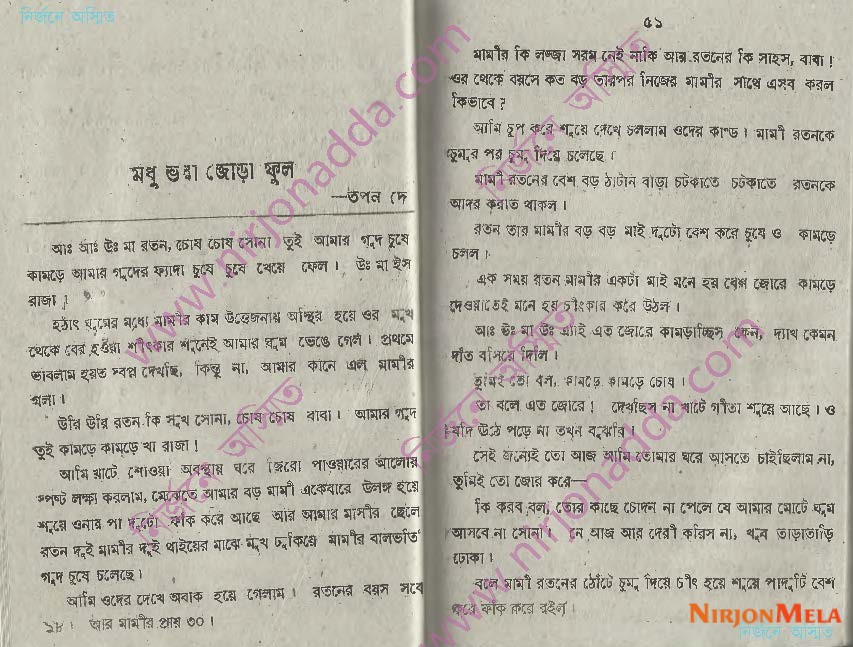 নির্জনে অস্মিত
মধু ভরা জোড়া ফুল
—তপন দে
আঃ আঃ উঃ মা রতন, চোষ চোষ সোনা তুই আমার গুদ চুষে
কামড়ে আমার গুদের ফ্যাদা চুষে চুষে খেয়ে ফেল। উঃ মা ইস
রাজা।
হঠাৎ ঘুমের মধ্যে মামীর কাম উত্তেজনায় অস্থির হয়ে ওর মুখ
থেকে বের হওয়া শীৎকার শুনেই আমার ঘুম ভেঙে গেল। প্রথমে
ভাবলাম হয়ত স্বপ্ন দেখছি, কিন্তু না, আমার কানে এল মামীর
গলা।
উরি উরি রতন কি সুখ সোনা, চোষ চোষ বাবা। আমার গুদ
তুই কামড়ে কামড়ে খা রাজা!
আমি খাটে শোওয়া অবস্থায় ঘরে জিরো পাওয়ারের আলোয়
স্পষ্ট লক্ষ্য করলাম, মেঝেতে আমার বড় মামী একেবারে উলঙ্গ হয়ে
শুয়ে ওনার পা দুটো ফাঁক করে আছে আর আমার মাসীর ছেলে
রতন দুই মামীর দুই থাইয়ের মাঝে মুখ ঢুকিয়ে মামীর বালভর্তি
গুদ চুষে চলেছে।
আমি ওদের দেখে অবাক হয়ে গেলাম। রতনের বয়স সবে
১৮। আর মামীর প্রায় ৩০।
৫১
মামীর কি লজ্জা সরম নেই নাকি আর রতনের কি সাহস, বাবা!
ওর থেকে বয়সে কত বড় তারপর নিজের মামীর সাথে এসব করল
কিভাবে?
আমি চুপ করে শুয়ে দেখে চললাম ওদের কাণ্ড। মামী রতনকে
চুমুর পর চুমু দিয়ে চলেছে।
মামী রতনের বেশ বড় ঠাটান বাড়া চটকাতে চটকাতে রতনকে
আদর করতে থাকল।
রতন তার মামীর বড় বড় মাই দুটো বেশ করে চুষে ও কামড়ে
চলল।
এক সময় রতন মামীর একটা মাই মনে হয় বেশ জোরে কামড়ে
দেওয়াতেই মনে হয় চীৎকার করে উঠল।
আঃ উঃ মা উঃ এ্যাই এত জোরে কামড়াচ্ছিস কেন, দ্যাখ কেমন
দাঁত বসিয়ে দিলি।
তুমিই তো বল, কামড়ে কামড়ে চোষ।
তা বলে এত জোরে! দেখছিস না খাটে গীতা শুয়ে আছে। ও
যদি উঠে পড়ে না তখন বুঝবি।
সেই জন্যেই তো আজ আমি তোমার ঘরে আসতে চাইছিলাম না,
তুমিই তো জোর করে—
কি করব বল, তোর কাছে চোদন না পেলে যে আমার মোটে ঘুম
আসবে না সোনা। নে আজ আর দেরী করিস না, খুব তাড়াতাড়ি
ঢোকা।
বলে মামী রতনের ঠোঁটে চুমু দিয়ে চীৎ হয়ে শুয়ে পাদুটি বেশ
করে ফাঁক করে রইল।
www.nirjonadda.com
নির্জনে অস্মিত
www.nirjonadda.com
নির্জনে অস্মিত
NIRJONMELA
নির্জনে অস্মিত